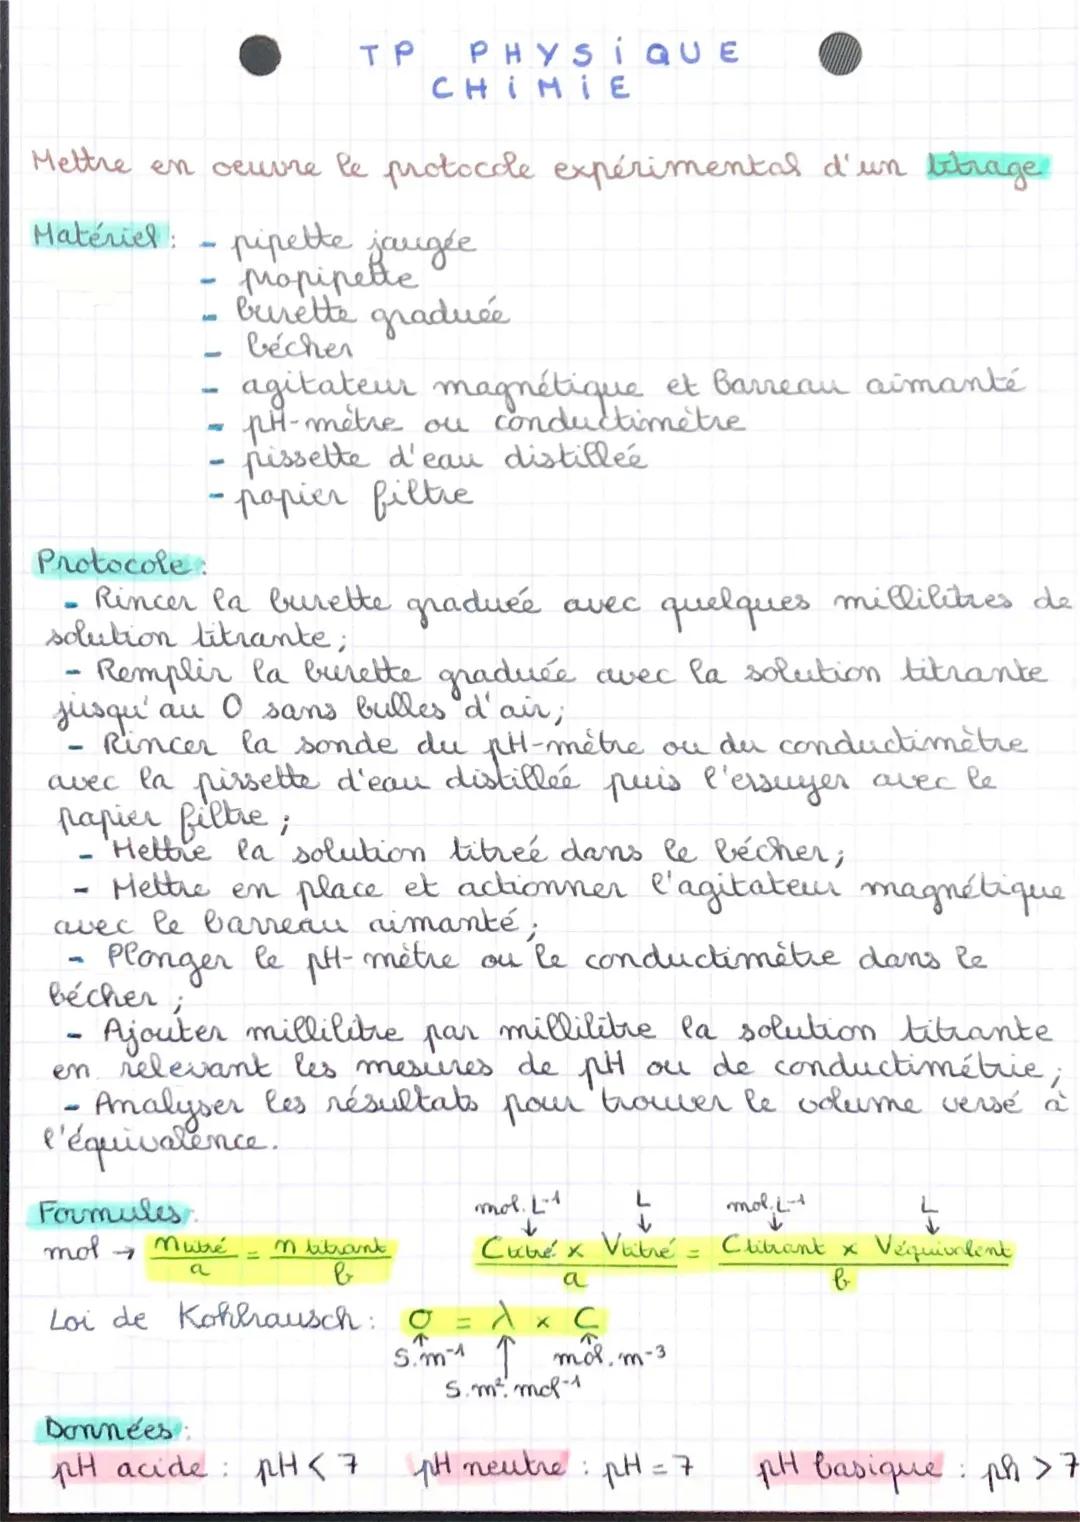 TP PHYSIQUE
CHIMIE
Mettre en oeuvre le protocole expérimental d'un titrage
Matériel : - pipette jaugée
- propipette
- burette graduée
- bécher
- agitateur magnétique et barreau aimanté
- pH-mètre ou conductimètre
- pissette d'eau distillée
- papier filtre
Protocole :
- Rincer la burette graduée avec quelques millilitres de
solution titrante ;
- Remplir la burette graduée avec la solution titrante
jusqu'au 0 sans bulles d'air ;
- Rincer la sonde du pH-mètre ou du conductimètre
avec la pissette d'eau distillée puis l'essuyer avec le
papier filtre ;
- Mettre la solution titrée dans le bécher ;
- Mettre en place et actionner l'agitateur magnétique
avec le barreau aimanté ;
- Plonger le pH-mètre ou le conductimètre dans le
bécher ;
- Ajouter millilitre par millilitre la solution titrante
en relevant les mesures de pH ou de conductimétrie ;
- Analyser les résultats pour trouver le volume versé à
l'équivalence.
Formules :
mol.L-1 L mol.L-1 L
↓ ↓ ↓ ↓
mol → n titré / a = n titrant / b Ctitré × Vtitré / a = Ctitrant × Véquivalent / b
Loi de Kohlrausch : σ = λ × C
S.m-1 mol.m-3
S.m².mol-1
Données :
pH acide : pH < 7 pH neutre : pH = 7 pH basique : ph > 7